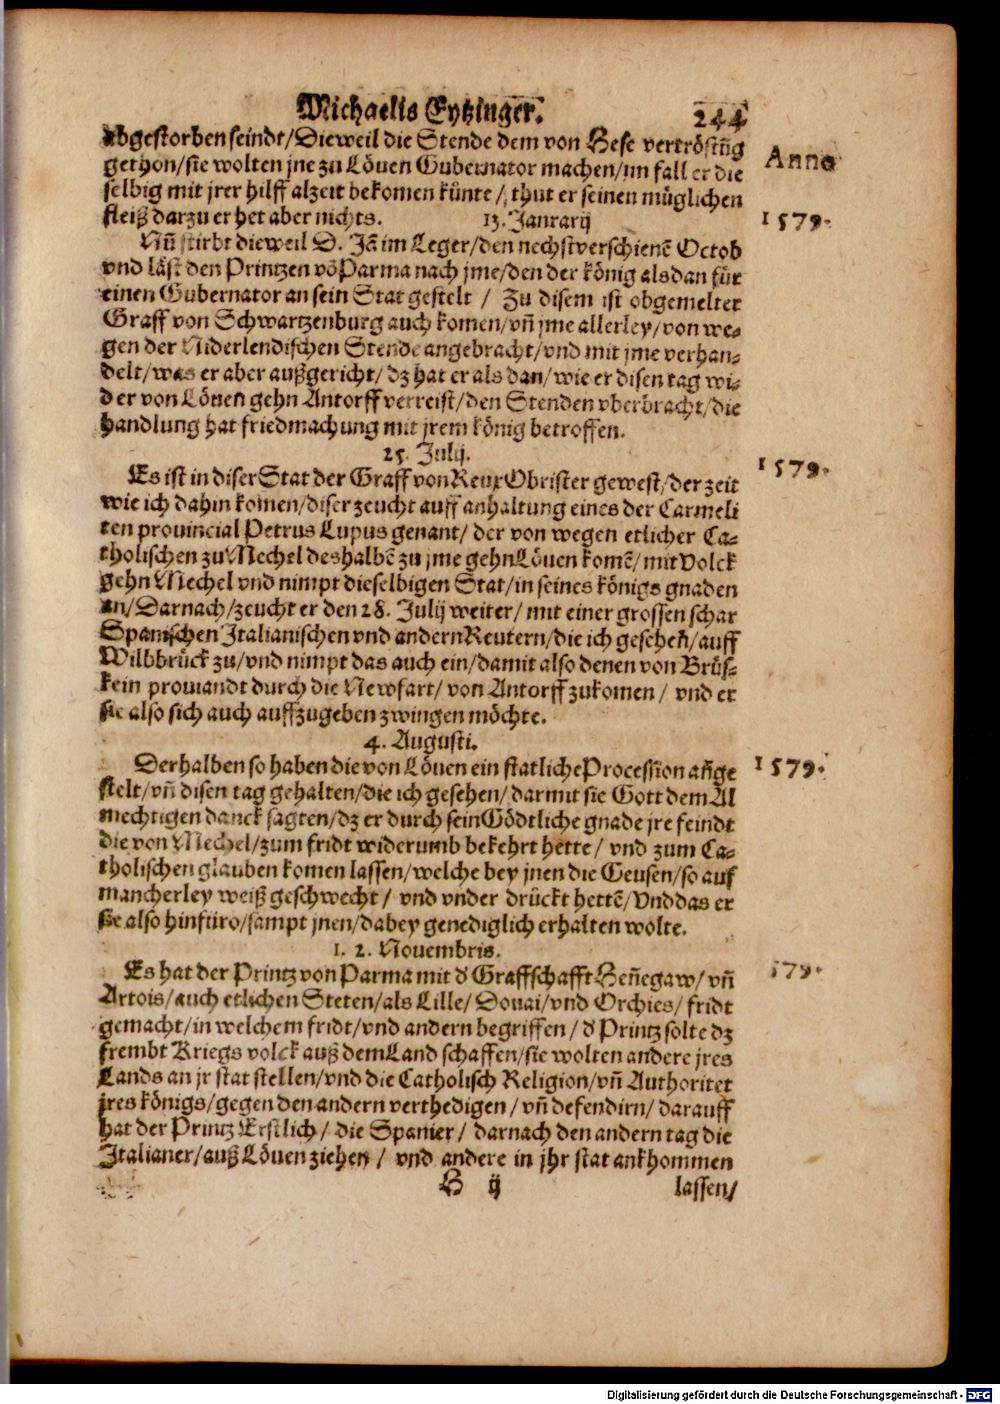 Michaelis Eytzinger.
244
abgestorben seindt/Dieweil die Stende dem von Hese vertröstũg
gethon/sie wolten jne zu Löuen Gubernator machen/im fall er die
selbig mit jrer hilff alzeit bekomen künte/ thut er seinen müglichen
fleiß darzu er het aber nichts.
Anno
13. Janrarij
1579.
Nũ stirbt dieweil D. Jã im Leger/den nechstverschienẽ Octob
vnd läst den Printzen võ Parma nach jme/den der könig alsdan für
einen Gubernator an sein Stat gestelt / Zu disem ist obgemelter
Graff von Schwartzenburg auch komen/vñ jme allerley/von we-
gen der Niderlendischen Stende angebracht/vnd mit jme verhan-
delt/was er aber außgericht/ dz hat er als dan/wie er disen tag wi-
der von Löueñ gehn Antorff verreist/den Stenden vberbracht/die
handlung hat friedmachung mit jrem könig betroffen.
25. Julij.
1579.
Es ist in diser Stat der Graff von Reux Obrister gewest/der zeit
wie ich dahin komen/diser zeucht auff anhaltung eines der Carmeli
ten prouincial Petrus Lupus genant/ der von wegen etlicher Ca-
tholischen zu Mechel deshalbẽ zu jme gehn Löuen komẽ/mit Volck
gehn Mechel vnd nimpt dieselbigen Stat/in seines königs gnaden
an/Darnach/zeucht er den 28. Julij weiter/ mit einer grossen schar
Spanischen Italianischen vnd andern Reutern/die ich geseheñ/auff
Wilbbrück zu/vnd nimpt das auch ein/damit also denen von Brüs-
kein prouiandt durch die Newfart/ von Antorff zukomen / vnd er
sie also sich auch auffzugeben zwingen möchte.
4. Augusti.
1579.
Derhalben so haben die von Löuen ein statliche Procession añge
stelt/vñ disen tag gehalten/die ich gesehen/ darmit sie Gott dem Al
mechtigen danck sagten/dz er durch sein Gödtliche gnade jre feindt
die von Mechel/zum fridt widerumb bekehrt hette/ vnd zum Ca-
tholischen glauben komen lassen/welche bey jnen die Geusen/so auf
mancherley weiß geschwecht / vnd vnder drückt hettẽ/Vnd das er
sie also hinfüro/sampt jnen/dabey genediglich erhalten wolte.
1. 2. Nouembris.
579.
Es hat der Printz von Parma mit d' Graffschafft Heñegaw/ vñ
Artois/auch etlichen Steten/als Lille/ Douai/vnd Orchies/ fridt
gemacht/in welchem fridt/vnd andern begriffen / d' Printz solte dz
frembt Kriegs volck auß dem Land schaffen/sie wolten andere jres
Lands an jr stat stellen/vnd die Catholisch Religion/vñ Authoritet
jres königs/gegen den andern verthedigen / vñ defendirn/ darauff
hat der Printz Erstlich / die Spanier/ darnach den andern tag die
Italianer/auß Löuen ziehen / vnd andere in jhr stat ankhommen
H ij
lassen/
Digitalisierung gefördert durch die Deutsche Forschungsgemeinschaft - DFG